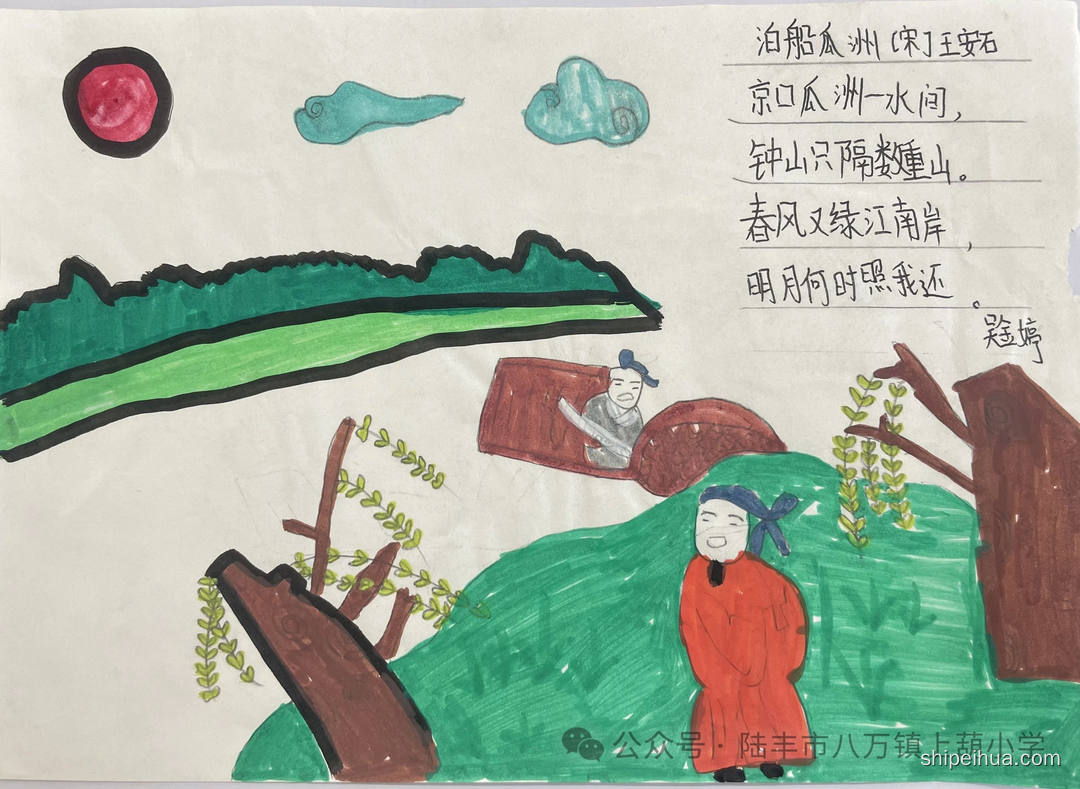 泊船瓜洲〔宋〕王安石
京口瓜洲一水间，
钟山只隔数重山。
春风又绿江南岸，
明月何时照我还。
公众号·陆丰市八万镇上葫小学
shipeihua.com